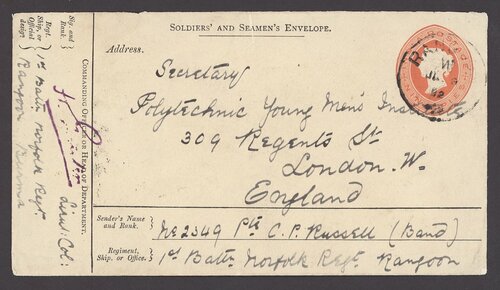 SOLDIERS' AND SEAMEN'S ENVELOPE.
Address.
Secretary
Polytechnic Young Men's
309 Regents St
London. W.
England
Sender's Name and Rank.
No 2549 Pte C. P. Russell (Band)
Regiment, Ship, or Office.
1st Battn Norfolk Regt Rangoon
COMMANDING OFFICER OR HEAD OF DEPARTMENT.
Sig. and Rank
Lieut: Col:
Regt. Ship, or Official design.
1st Battn Norfolk Regt.
Rangoon Burma
POSTAGE
RAN